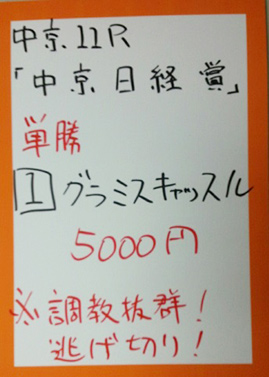 中京11R
「中京日経賞」
単勝
1 グラミスキャッスル
5000円
※調教抜群!
逃げ切り!